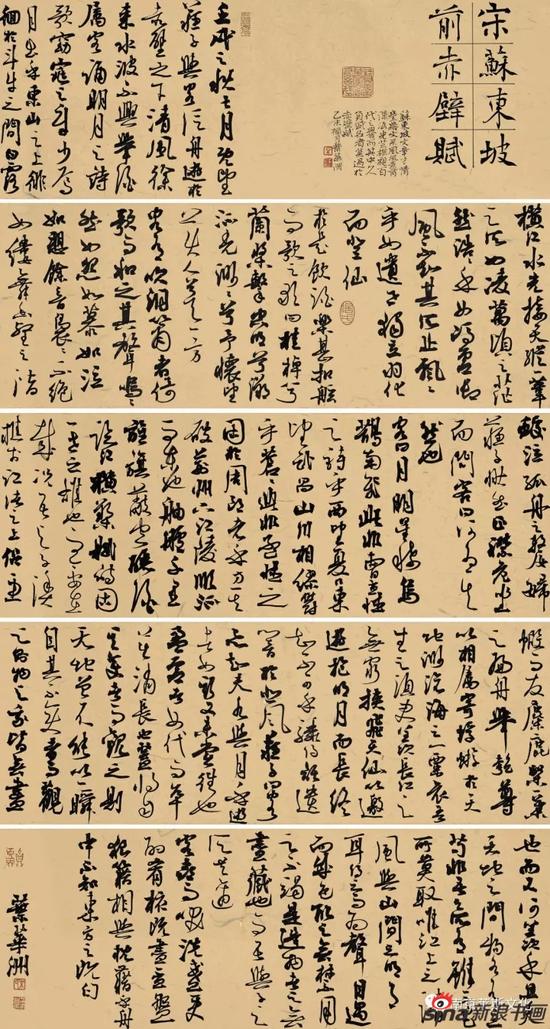 宋蘇東坡
前赤壁賦
壬戌之秋七月既望
蘇子與客泛舟遊於
赤壁之下清風徐
來水波不興舉酒
屬客誦明月之詩
歌窈窕之章少焉
月出於東山之上徘
徊於斗牛之間白露
橫江水光接天縱一葦
之所如凌萬頃之茫
然浩乎如馮虛御
風而不知其所止飄飄
乎如遺世獨立羽化
而登仙
於是飲酒樂甚扣舷
而歌之歌曰桂棹兮
蘭槳擊空明兮溯
流光渺渺兮予懷望
美人兮天一方
客有吹洞簫者倚
歌而和之其聲嗚嗚
然如怨如慕如泣
如訴餘音裊裊不絕
如縷舞幽壑之潛
蛟泣孤舟之嫠婦
蘇子愀然正襟危坐
而問客曰何為其
然也
客曰月明星稀烏
鵲南飛此非曹孟德
之詩乎西望夏口東
望武昌山川相繆鬱
乎蒼蒼此非孟德之
困於周郎者乎方其
破荊州下江陵順流
而東也舳艫千里
旌旗蔽空釃酒
臨江橫槊賦詩固
一世之雄也而今安在
哉況吾與子漁
樵於江渚之上侶魚
蝦而友麋鹿駕一葉
之扁舟舉匏尊
以相屬寄蜉蝣於天
地渺滄海之一粟哀吾
生之須臾羨長江之
無窮挾飛仙以遨
遊抱明月而長終
知不可乎驟得託遺
響於悲風蘇子曰客
亦知夫水與月乎逝
者如斯而未嘗往也
盈虛者如彼而卒
莫消長也蓋將自
其變者而觀之則
天地曾不能以一瞬
自其不變者而觀
之則物與我皆無盡
也而又何羨乎且夫
天地之間物各有主
苟非吾之所有雖一毫
而莫取惟江上之清
風與山間之明月
耳得之而為聲目遇
而成色取之無禁用
之不竭是造物者之無
盡藏也而吾與子之
所共適
客喜而笑洗盞更
酌肴核既盡杯盤
狼籍相與枕藉乎舟
中不知東方之既白
葉華洲
sina 新浪書画